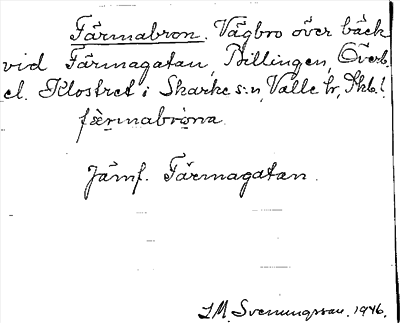 Färmabron. Vägbro över bäck
vid Färmagatan, Billingen, Överb.
el. Klostret i Skarke s:n, Valle hr, Skb. l.
färmabrona.
Jämf. Färmagatan.
J M Svenungsson. 1946.